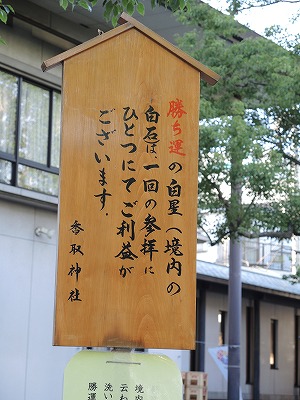 勝ち運の白星(境内の
白石は、一回の参拝に
ひとつにてご利益が
ございます.
香取神社
境内
云わ
洗い
勝運